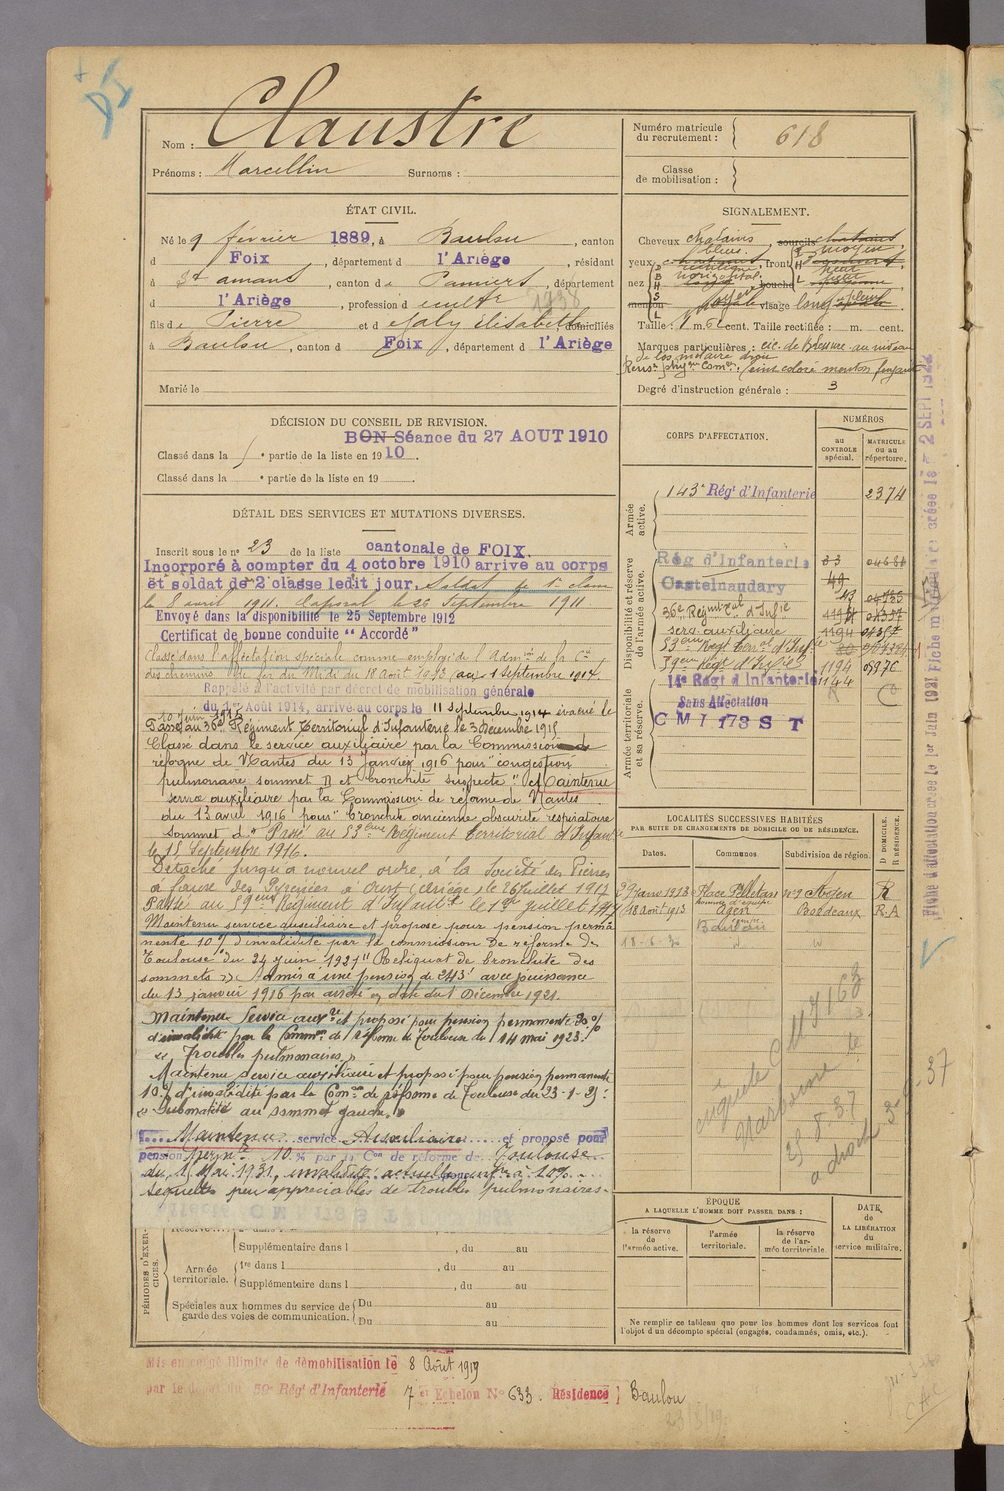 Nom : Claustre
Prénoms : Marcellin Surnoms :
Numéro matricule du recrutement : 618
Classe de mobilisation :
ÉTAT CIVIL.
Né le 9 février 1889, à Baulou, canton
d Foix, département d l'Ariège, résidant
à St amans, canton de Pamiers, département
d l'Ariège, profession de cultr 1938
fils de Pierre et de Faly Élisabeth domiciliés
à Baulou, canton d Foix, département d l'Ariège
Marié le
SIGNALEMENT.
Cheveux chatains sourcils chatains
yeux bleus, front moyen
nez rectiligne horizontal bouche
menton visage long
Taille : 1 m. cent. Taille rectifiée : m. cent.
Marques particulières : cic. de blessure au niveau
de los molaire droit
teint coloré menton fuyant
Degré d'instruction générale : 3
DÉCISION DU CONSEIL DE REVISION.
BON Séance du 27 AOUT 1910
Classé dans la e partie de la liste en 1910.
Classé dans la e partie de la liste en 19
DÉTAIL DES SERVICES ET MUTATIONS DIVERSES.
Inscrit sous le n° 23 de la liste cantonale de FOIX.
Incorporé à compter du 4 octobre 1910 arrivé au corps
et soldat de 2e classe ledit jour, Soldat de 1e classe
le 8 avril 1911. Caporal le 26 Septembre 1911
Envoyé dans la disponibilité le 25 Septembre 1912
Certificat de bonne conduite "Accordé"
Classé dans l'affectation spéciale comme employé de l'Admon de la Cie
des chemins de fer du Midi du 18 août 1913 au 1 Septembre 1914
Rappelé à l'activité par décret de mobilisation générale
du 1er Août 1914, arrivé au corps le 11 septembre 1914 évacué le
10 Juin 1915
Passé au 36e Régiment Territorial d'Infanterie le 3 décembre 1915
Classé dans le service auxiliaire par la Commission de
réforme de Nantes du 13 janvier 1916 pour "congestion
pulmonaire sommet D et bronchite suspecte" et Maintenu
service auxiliaire par la Commission de réforme de Nantes
du 13 avril 1916 pour "bronchite ancienne obscurité respiratoire
sommet dt" Passé au 53eme Régiment territorial d'Infanterie
le 15 Septembre 1916.
Détaché jusqu'à nouvel ordre, à la Société des Pierres
à faux des Pyrénées à Oust (Ariège) le 26 juillet 1917
Passé au 59eme Régiment d'Infanterie le 1er juillet 1917
Maintenu service auxiliaire et proposé pour pension perma
nente 10% d'invalidité par la commission de réforme de
Toulouse du 24 juin 1921 "Reliquat de bronchite des
sommets" Admis à une pension de 243f avec jouissance
du 13 janvier 1916 par arrêté en date du 1 Décembre 1921.
Maintenu Service auxre et proposé pour pension permanente 30%
d'invalidité par la Common de réforme de Toulouse du 14 mai 1923.
"Troubles pulmonaires"
Maintenu service auxiliaire et proposé pour pension permanente
10% d'invalidité par la Comon de réforme de Toulouse du 23-1-25.
"Submatité au sommet gauche."
Maintenu service Auxiliaire et proposé pour
pension permte 10 % par la Con de réforme de Toulouse
du 11 Mai 1931, invalidité actuelle inférre à 10%
Séquelles peu appréciables de troubles pulmonaires.
CORPS D'AFFECTATION.
NUMÉROS
au CONTROLE spécial.
MATRICULE ou au répertoire.
Armée active.
143e Régt d'Infanterie 2374
Disponibilité et réserve de l'armée active.
Rég d'Infanterie
Castelnaudary 49
36e Régiment d'Infie
serv auxiliaire 1194
53eme Regt Terral d'Infie
59eme Régt d'Infie 1194
Armée territoriale et sa réserve.
14e Régt d'Infanterie 1144
Sans Affectation
CMI 173 ST
LOCALITÉS SUCCESSIVES HABITÉES
PAR SUITE DE CHANGEMENTS DE DOMICILE OU DE RÉSIDENCE.
Dates. Communes Subdivision de région.
D DOMICILE. R RÉSIDENCE.
29 janv 1913 Place Pelletan n°9 Agen R
18 août 1913 Agen Bordeaux R.A
18-6-30 Baulou
enquête CM 7163
Narbonne le
25 8 37
ÉPOQUE
A LAQUELLE L'HOMME DOIT PASSER DANS :
la réserve de l'armée active.
l'armée territoriale.
la réserve de l'armée territoriale.
DATE de LA LIBÉRATION du service militaire.
Ne remplir ce tableau que pour les hommes dont les services font
l'objet d'un décompte spécial (engagés, condamnés, omis, etc.).
PÉRIODES D'EXERCICES.
Supplémentaire dans l , du au
Armée territoriale.
1re dans l , du au
Supplémentaire dans l , du au
Spéciales aux hommes du service de garde des voies de communication.
Du au
Du au
Mis en congé illimité de démobilisation le 8 Août 1919
par le dépôt du 59e Régt d'Infanterie 7e Echelon N° 633. Résidence Baulou